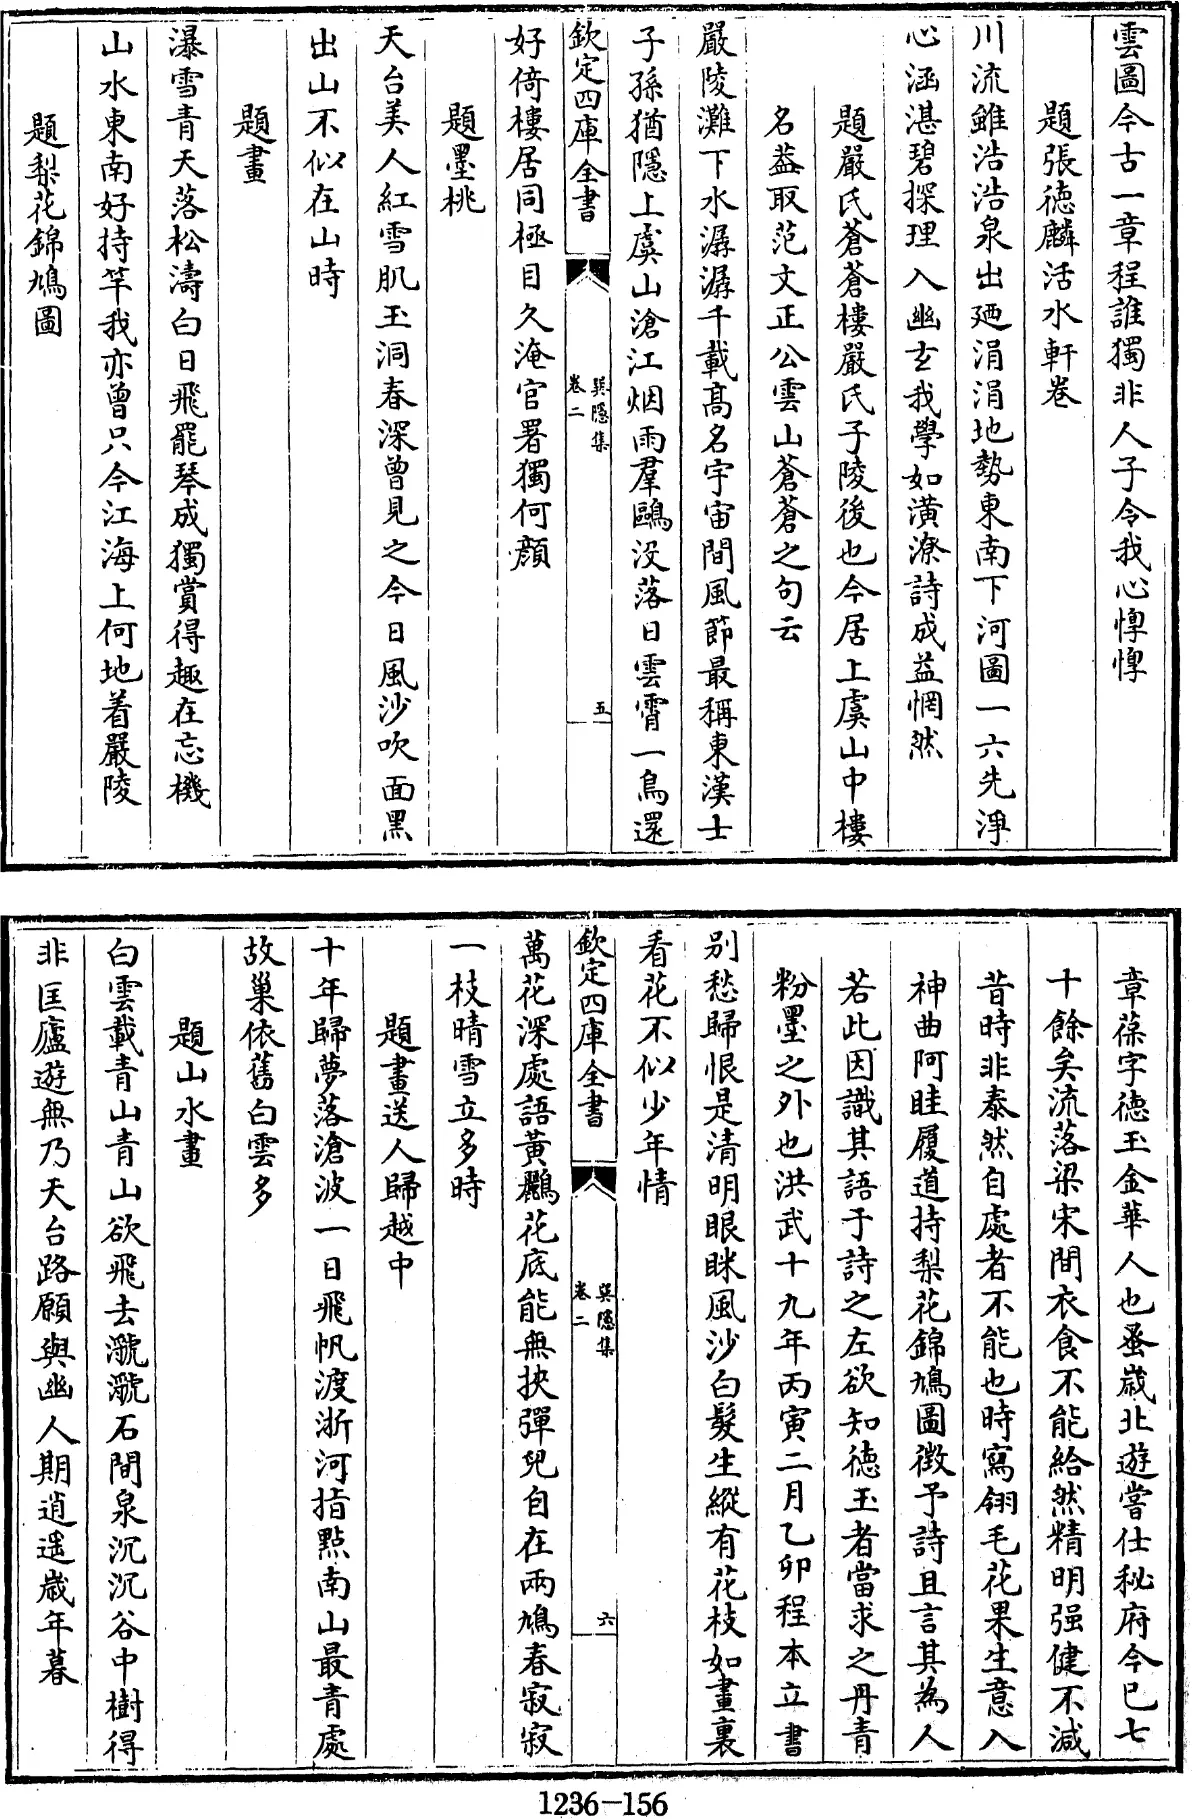 雲圖今古一章程誰獨非人子令我心惸惸
題張徳麟活水軒卷
川流雖浩浩泉出廼涓涓地勢東南下河圖一六先淨
心涵湛碧探理入幽玄我學如潢潦詩成益惘然
題嚴氏蒼蒼樓嚴氏子陵後也今居上虞山中樓
名葢取范文正公雲山蒼蒼之句云
嚴陵灘下水潺潺千載髙名宇宙間風節最稱東漢士
子孫猶隱上虞山滄江烟雨羣鷗没落日雲霄一鳥還
欽定四庫全書
巽隱集
卷二
五
好倚樓居同極目久淹官署獨何顔
題墨桃
天台美人紅雪肌玉洞春深曾見之今日風沙吹面黒
出山不似在山時
題畫
瀑雪青天落松濤白日飛罷琴成獨賞得趣在忘機
山水東南好持竿我亦曾只今江海上何地着嚴陵
題梨花錦鳩圖
章葆字徳玉金華人也蚤歳北遊嘗仕秘府今已七
十餘矣流落梁宋間衣食不能給然精明强健不減
昔時非泰然自處者不能也時寫翎毛花果生意入
神曲阿眭履道持梨花錦鳩圖徴予詩且言其為人
若此因識其語于詩之左欲知徳玉者當求之丹青
粉墨之外也洪武十九年丙寅二月乙卯程本立書
别愁歸恨是清明眼眯風沙白髮生縱有花枝如畫裏
看花不似少年情
欽定四庫全書
巽隱集
卷二
六
萬花深處語黄鸝花底能無挾彈兒自在兩鳩春寂寂
一枝晴雪立多時
題畫送人歸越中
十年歸夢落滄波一日飛帆渡浙河指㸃南山最青處
故巢依舊白雲多
題山水畫
白雲載青山青山欲飛去㶁㶁石間泉沉沉谷中樹得
非匡廬遊無乃天台路願與幽人期逍遥歳年暮
1236-156